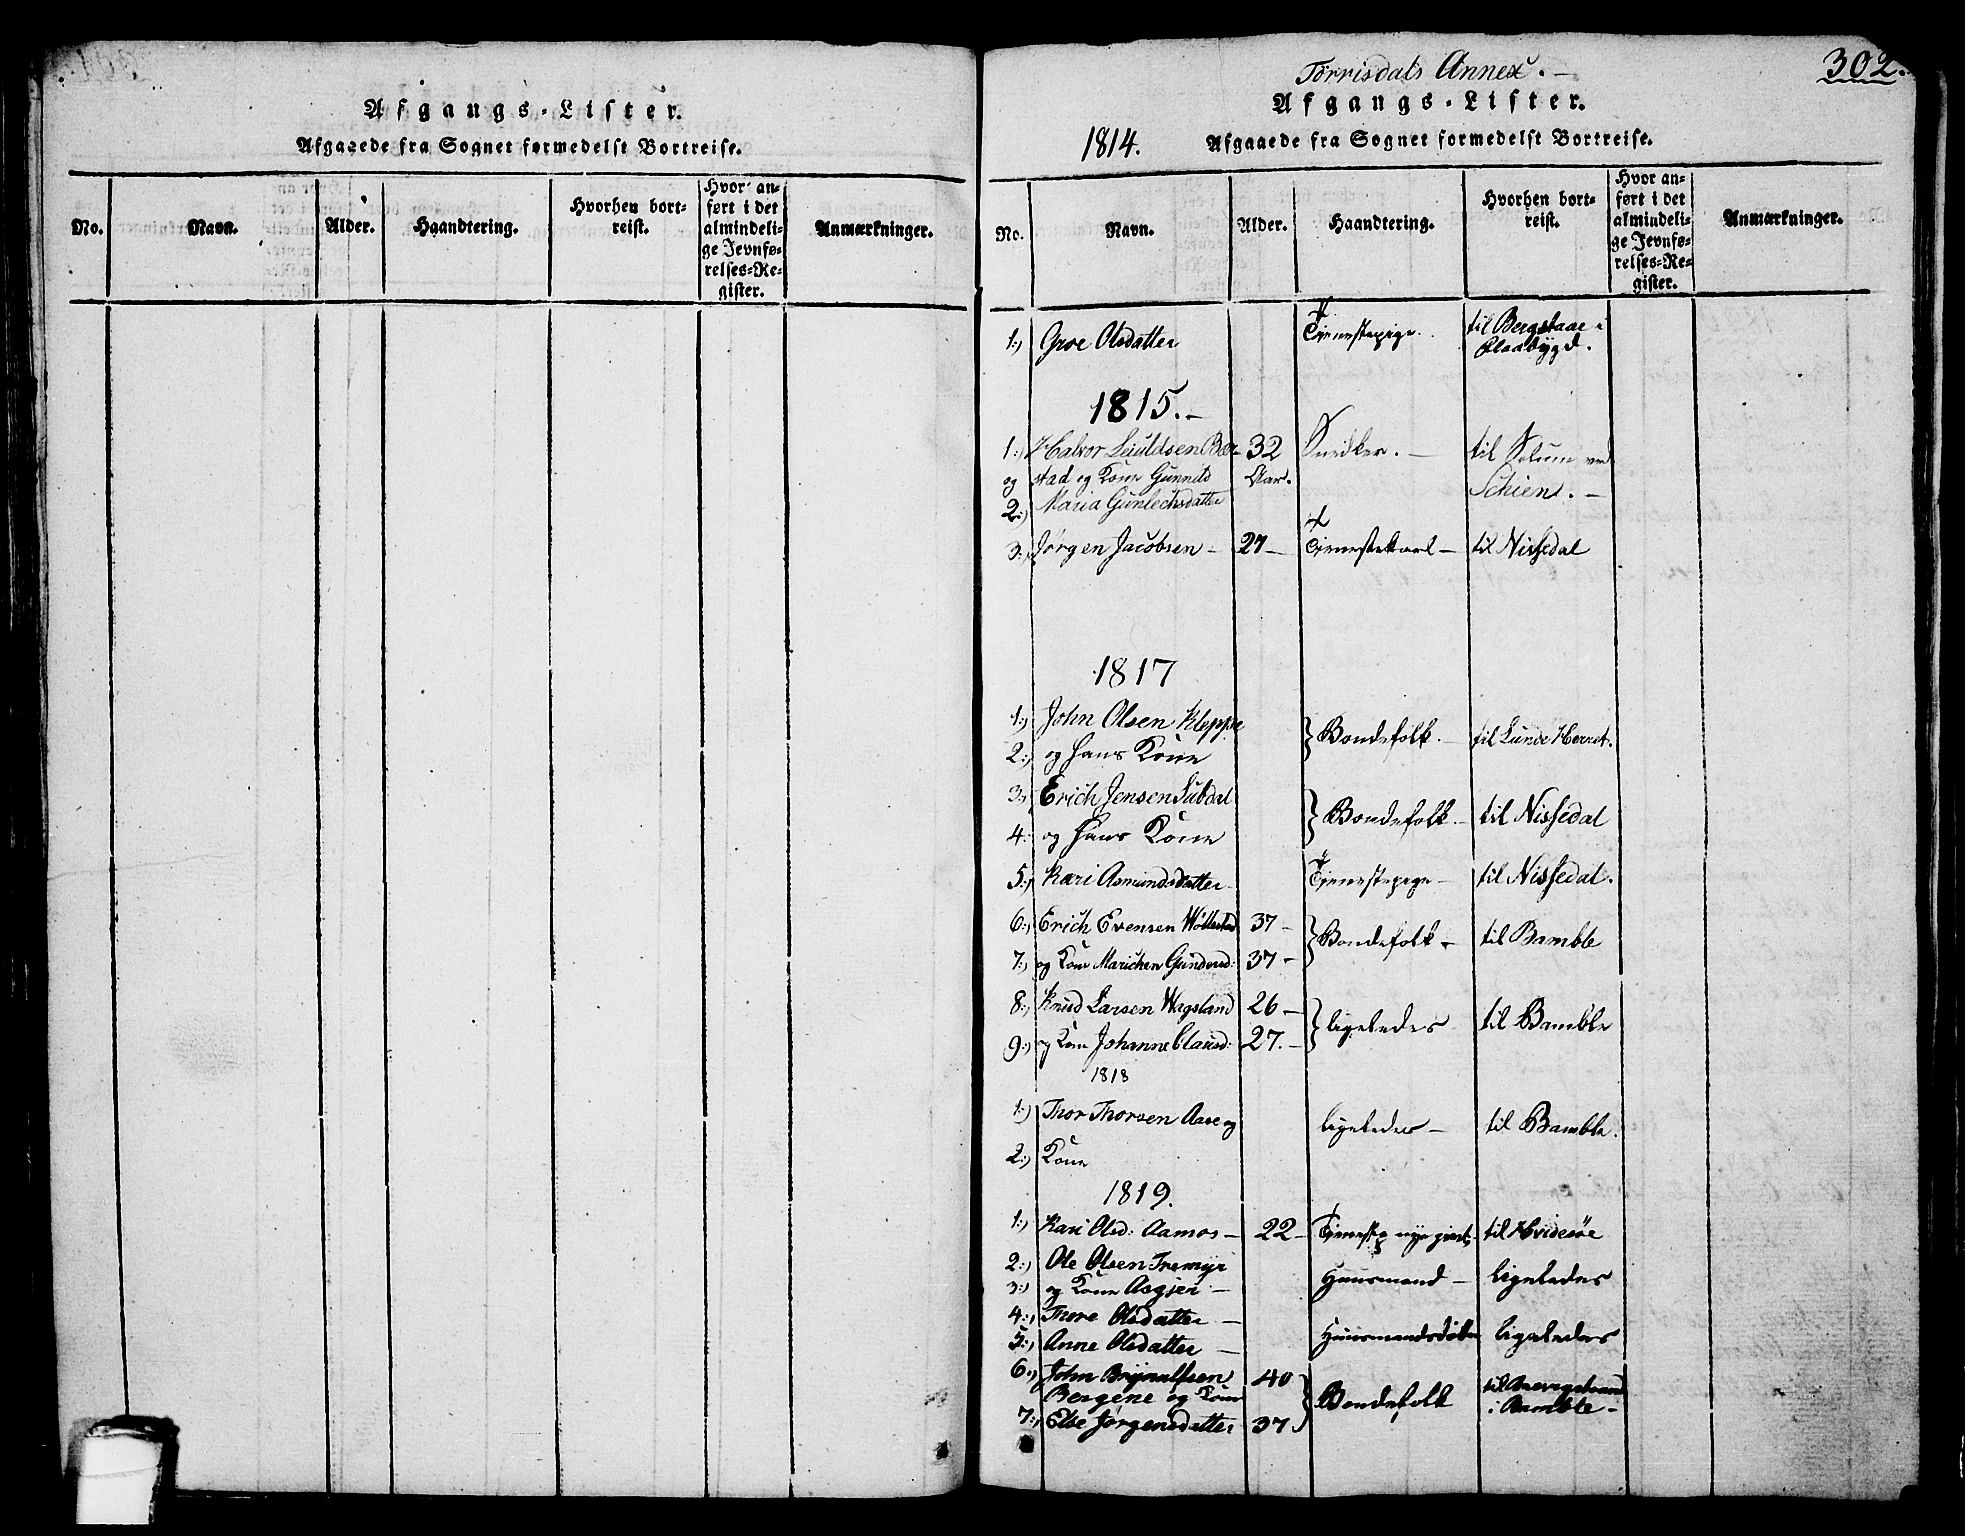 Afgangs-Lister.
Afgaaede fra Sognet formedelst Bortreise.
No. Navn. Alder. Haandtering. Hvorhen bortreist. Hvor anført i det almindelige Jevnførelses-Register. Anmærkninger.
302.
Tørrisdals Annex. -
Afgangs-Lister.
1814. Afgaaede fra Sognet formedelst Bortreise.
No. Navn. Alder. Haandtering. Hvorhen bortreist. Hvor anført i det almindelige Jevnførelses-Register. Anmærkninger.
1:) Groe Olsdatter Tjenestepige. til Bergstaae i
bygd.
1815. -
1:) Halvor Leiuldsen Bær- 32 Snedker. - til Solum ved
og stad og Kone Gunnild Aar. Schien. -
2:) Maria Gunlechsdatter
3:) Jørgen Jacobsen - 27 - Tjenestekarl - til Nissedal
1817
1:) John Olsen Kleppe Bondefolk. - til Lunde
2:) og hans Kone
3:) Erich Jensen Bondefolk - til Nissedal
4: og hans Kone
5:) Kari Asmundsdatter Tjenestepige - til Nissedal.
6:) Erich Evensen 37 - Bondefolk - til Bamble
7:) og Kone Marichen Gundersd: 37 -
8:) Knud Larsen Wagsland 26 - ligeledes til Bamble
9:) og Kone Johanne Clausd: 27. -
1818
1:) Thor Thorsen Aase og ligeledes - til Bamble.
2:) Kone
1819.
1:) Kari Olsd: Aamos - 22 - til Hvidesøe
2:) Ole Olsen Huusmand - ligeledes
3:) og Kone Asgjer -
4:) Thore Olsdatter - Huusmandsdøtre ligeledes
5:) Anne Olsdatter -
6:) John Brynulfsen 40 Bondefolk til
Bergene og Kone i Bamble -
7:) Else Jørgensdatter 37